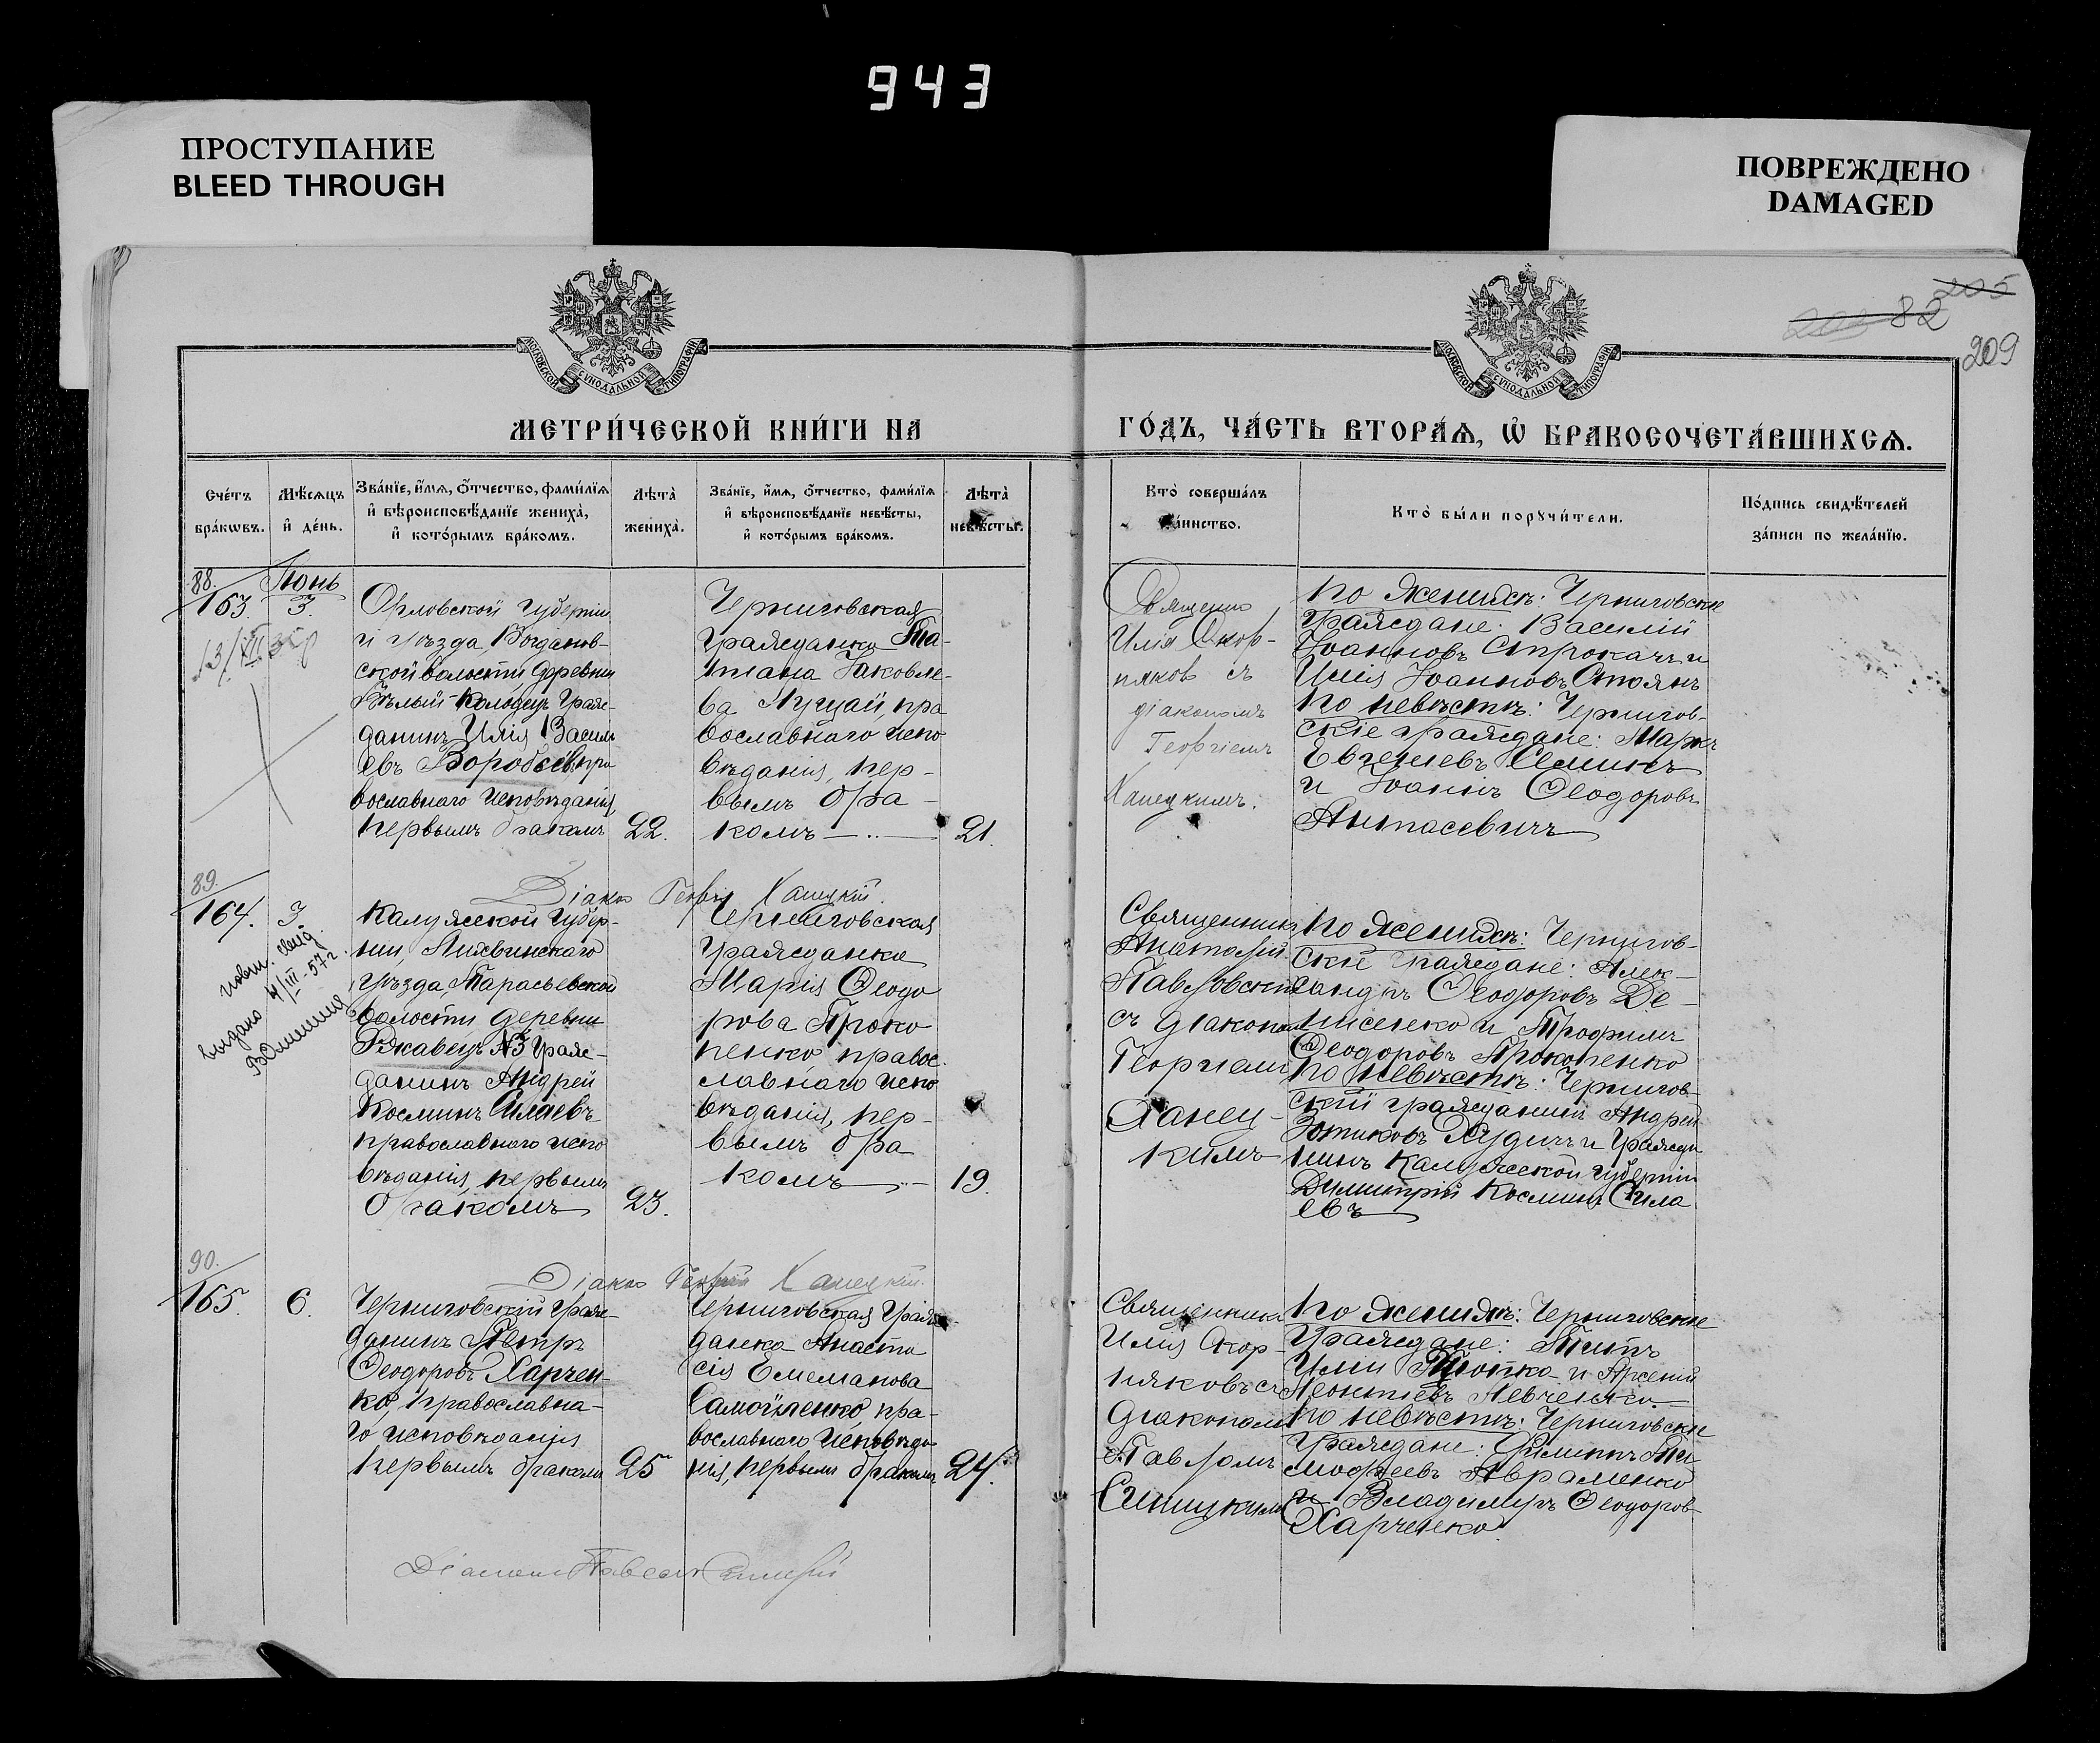 943
ПРОСТУПАНИЕ
BLEED THROUGH
ПОВРЕЖДЕНО
DAMAGED
205
82
209
МОСКОВСКОЙ СѴНОДАЛЬНОЙ ТИПОГРАФІИ
МОСКОВСКОЙ СѴНОДАЛЬНОЙ ТИПОГРАФІИ
МЕТРИ́ЧЕСКОЙ КНИ́ГИ НА
ГО́ДЪ, ЧА́СТЬ ВТОРА́Ѧ, Ѡ҆ БРАКОСОЧЕТА́ВШИХСѦ.
Сче́тъ бра́кѡвъ.
Мѣ́сѧцъ и҆ де́нь.
Зва́нїе, и҆́мѧ, ѻ҆́тчество, фами́лїѧ
и҆ вѣроисповѣ́данїе жениха̀,
и҆ кото́рымъ бра́комъ.
Лѣта̀ жениха̀.
Зва́нїе, и҆́мѧ, ѻ҆́тчество, фами́лїѧ
и҆ вѣроисповѣ́данїе невѣ́сты,
и҆ кото́рымъ бра́комъ.
Лѣта̀ невѣ́сты.
Кто̀ соверша́лъ
та́инство.
Кто̀ бы́ли порꙋчи́тели.
По́дпись свидѣ́телей
за́писи по жела́нїю.
88.
163
Іюнь
3.
Орловской губерніи
и уѣзда, Богданов-
ской волости деревни
Бѣлый-Колодезь граж-
данинъ Илія Василь
евъ Воробьевъ, пра
вославнаго исповѣданія,
первымъ бракомъ
22.
Черниговская
гражданка Та-
тіана Іаковле-
ва Лугай, пра
вославнаго испо
вѣданія, пер-
вымъ бра-
комъ
21.
Священник
Илія Скор-
няков съ
діакономъ
Георгіемъ
Ханецкимъ.
По женихѣ: Черниговскіе
граждане: Василій
Іоанновъ Строкачъ и
Илія Іоанновъ Стоянъ
По невѣстѣ: Чернигов-
скіе граждане: Маркъ
Евгеніевъ Семинъ
и Іоаннъ Ѳеодоровъ
Антасевичъ
Діакон Георгій Ханецкій.
89.
164.
3
выдано повт. свид.
4/III-57г.
Калужской губер-
ніи, Лихвинскаго
уѣзда, Тарасьевской
волости деревни
Ржавецъ №3 граж-
данинъ Андрей
Косминъ Силаевъ
православнаго испо
вѣданія, первымъ
бракомъ
23.
Черниговская
гражданка
Марія Ѳеодо
рова Проко
пенко правос-
лавнаго испо
вѣданія, пер-
вымъ бра
комъ
19.
Священникъ
Анатолій
Павловскій
съ діакономъ
Георгіемъ
Ханец-
кимъ
По женихѣ: Чернигов-
скіе граждане: Алек-
сандръ Ѳеодоровъ Де-
нисенко и Трофимъ
Ѳеодоровъ Прокопенко
По невѣстѣ: Чернигов-
скій гражданинъ Андрей
Зотиковъ Худичъ и гражда
нинъ Калужской губерніи
Димитрій Косминъ Сила
евъ
Діакон Георгій Ханецкій.
90.
165.
6.
Черниговскій граж-
данинъ Петръ
Ѳеодоровъ Харчен-
ко, православна-
го исповѣданія
первымъ бракомъ
25
Черниговская граж-
данка Анаста
сія Емеманова
Самойленко, пра-
вославнаго исповѣда
нія, первымъ бракомъ
24.
Священникъ
Илія Скор-
няковъ съ
діакономъ
Павломъ
Синицкимъ
По женихѣ: Черниговскіе
граждане: Титъ
Иліи Тютка и Арсеній
Леонтіевъ Левченко
По невѣстѣ: Черниговскіе
граждане: Филиппъ Ти
моѳеевъ Авраменко
и Владиміръ Ѳеодоров
Харченко
Діаконъ Павелъ Синицкій